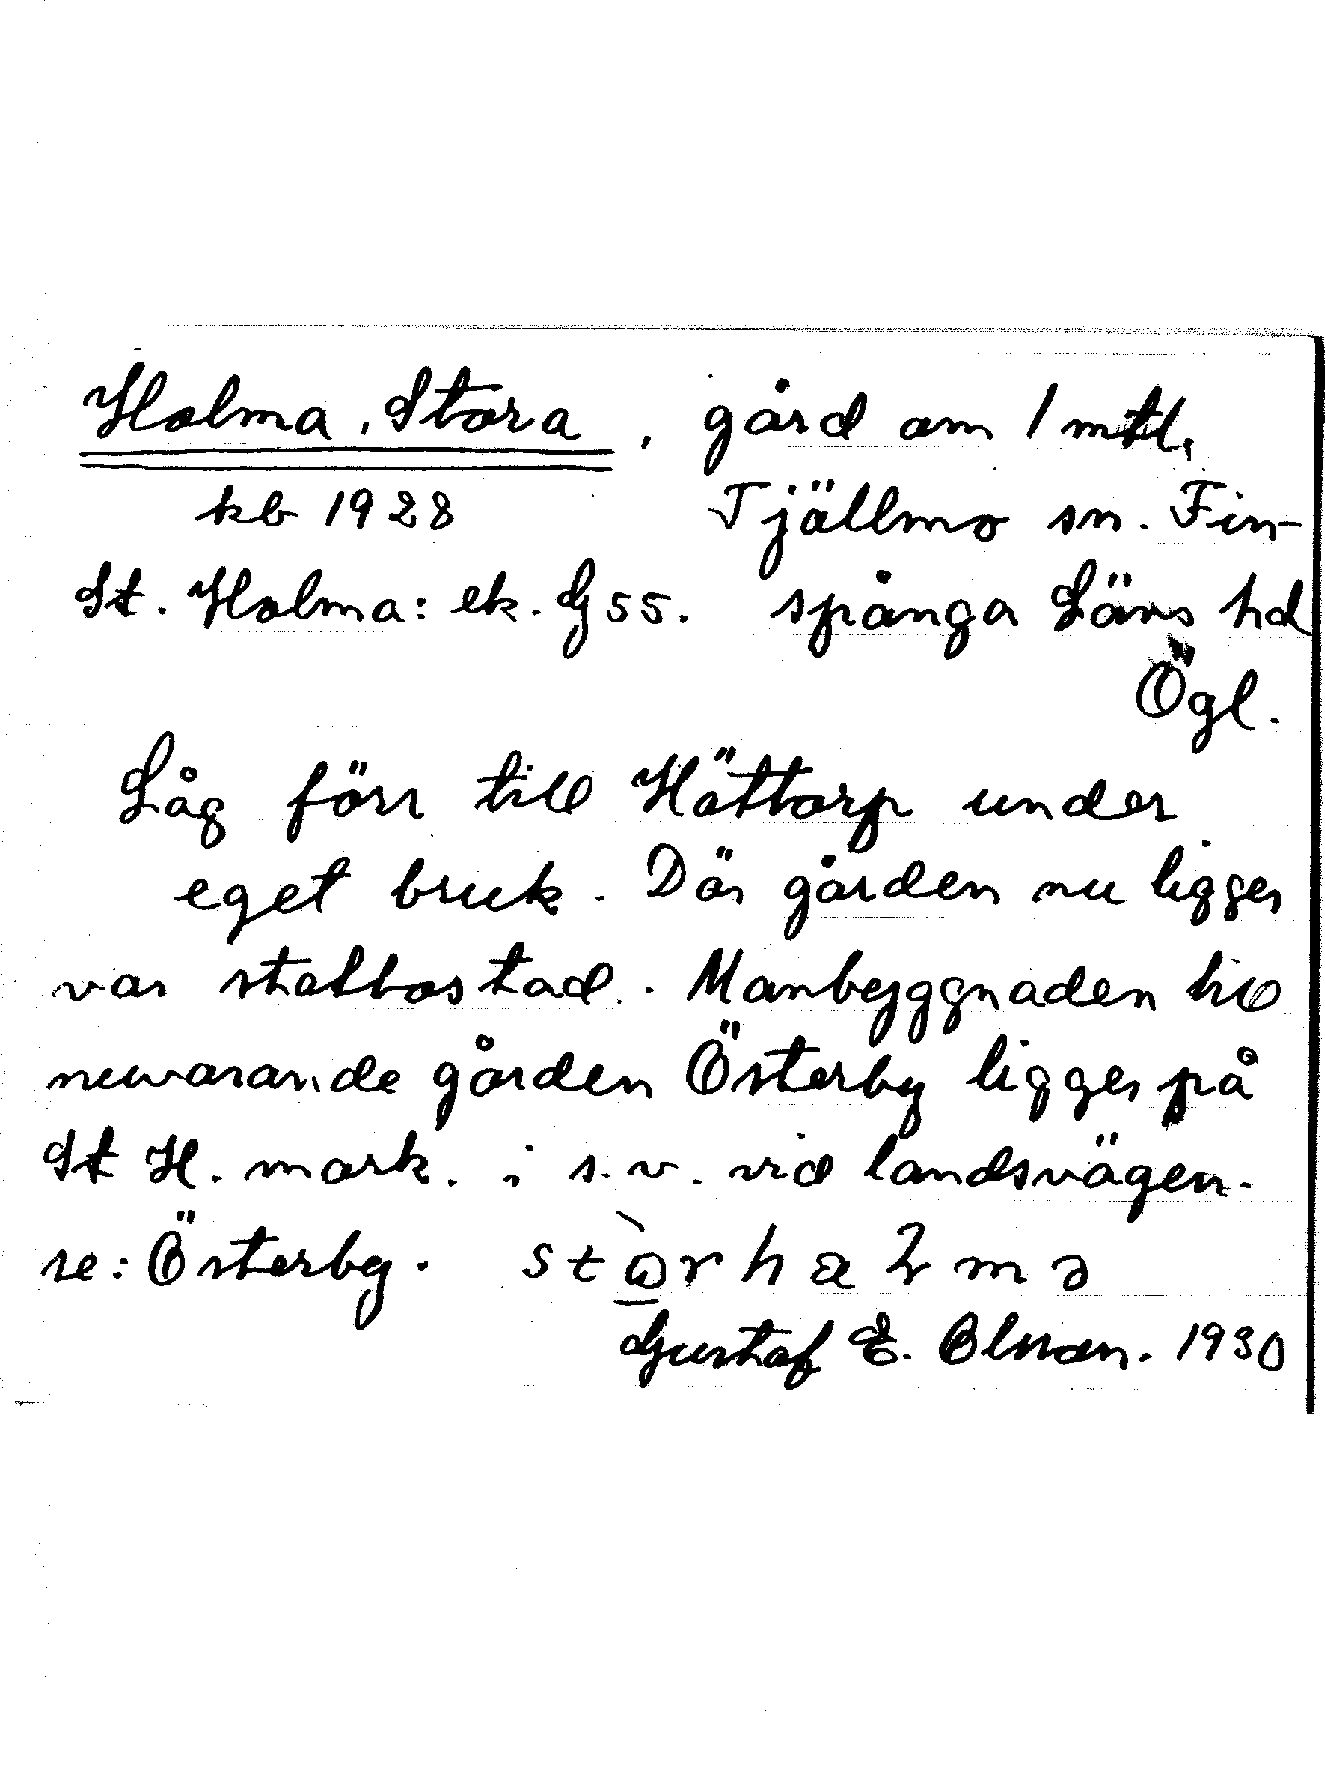 Holma, Stora, gård om 1 mtl,
kb 1928 Tjällmo sn. Fin-
St. Holma: ek. G 55. spånga Läns hd
Ögl.
Låg förr till Hättorp under
eget bruk. Där gården nu ligger
var statbostad. Manbyggnaden till
nuvarande gården Österby ligger på
St H. mark. i s.v. vid landsvägen.
se: Österby.
Gustaf E. 1930